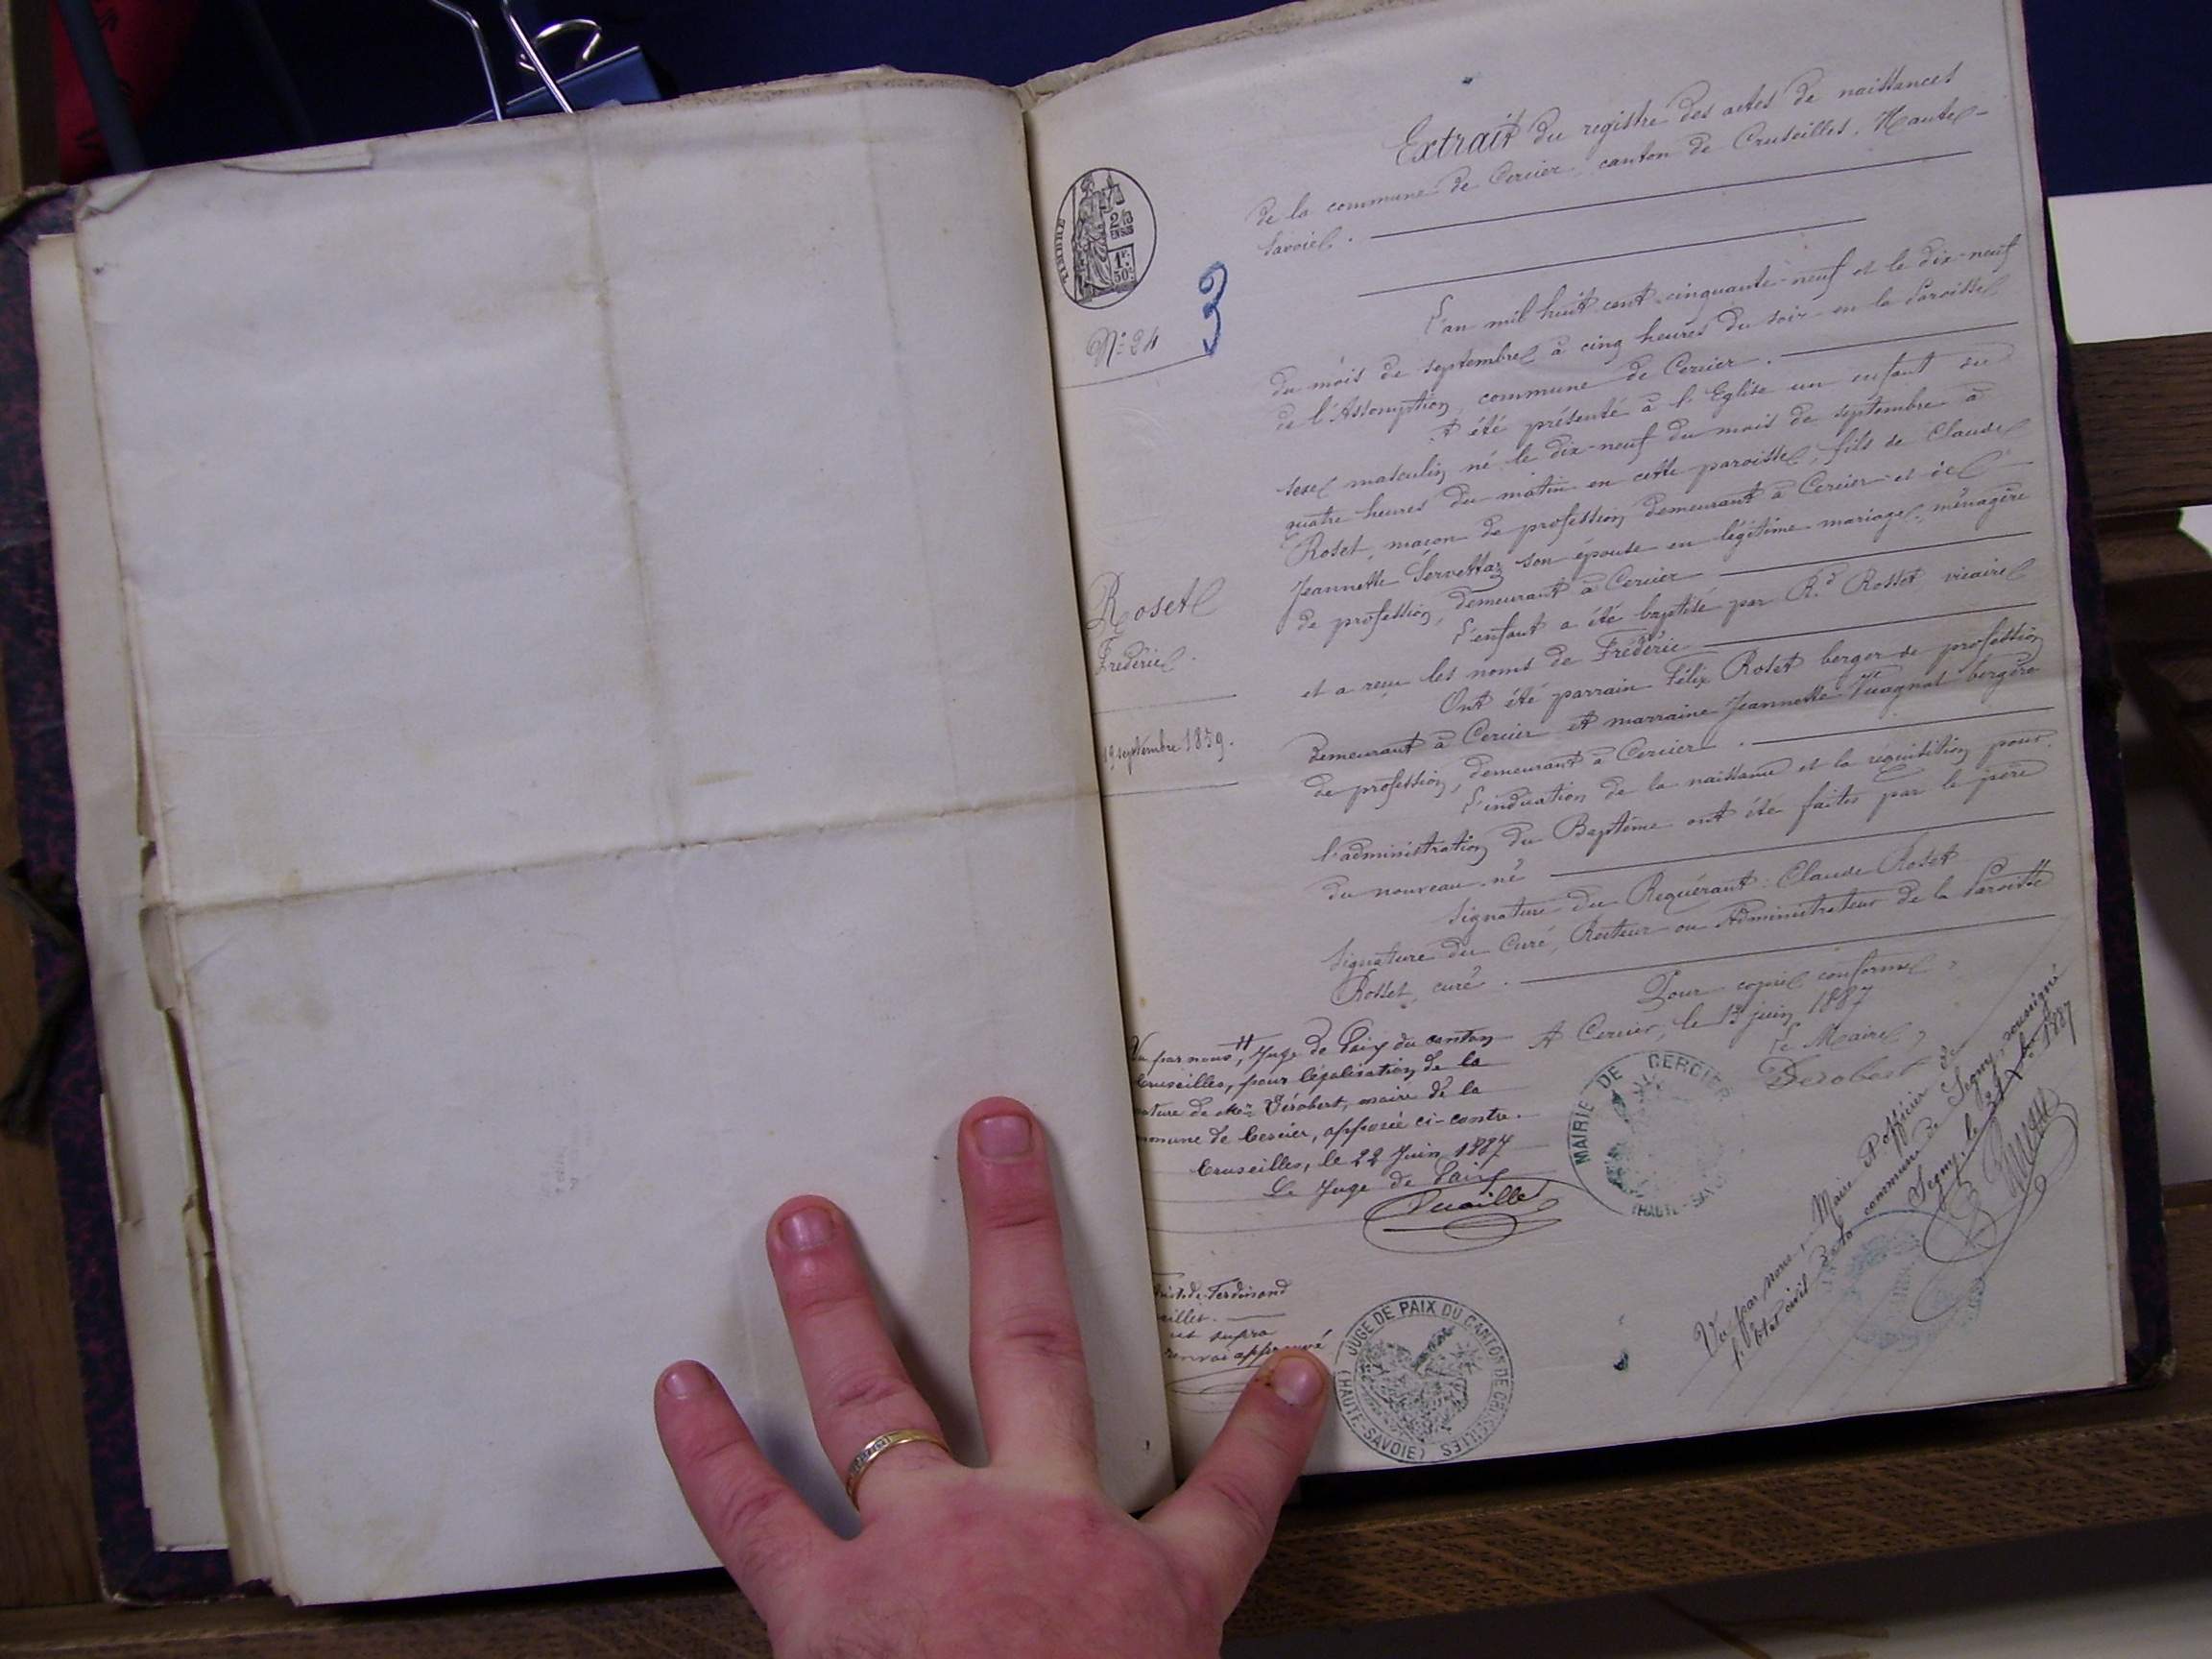 Extrait du registre des actes de naissances
de la commune de Cercier, canton de Cruseilles, Haute-
Savoie.
TIMBRE
2/10
EN SUS
1F.
50c.
3
N° 24
L'an mil huit cent cinquante-neuf et le dix-neuf
du mois de septembre à cinq heures du soir en la Paroisse
de l'Assomption, commune de Cercier.
A été présenté à l'Eglise un enfant du
sexe masculin né le dix-neuf du mois de septembre à
quatre heures du matin en cette paroisse, fils de Claude
Roset, maçon de profession demeurant à Cercier et de
Jeannette Servettaz son épouse en légitime mariage, ménagère
de profession, demeurant à Cercier
L'enfant a été baptisé par Rd Rosset vicaire
et a reçu les noms de Frédéric
Ont été parrain Félix Roset berger de profession
demeurant à Cercier et marraine Jeannette Vuagnat bergère
de profession, demeurant à Cercier.
L'indication de la naissance et la réquisition pour
l'administration du Baptême ont été faites par le père
du nouveau-né
Signature du Requérant: Claude Roset
Signature du Curé, Recteur ou Administrateur de la Paroisse
Rosset, curé.
Roset
Frédéric.
19 septembre 1859.
Pour copie conforme,
A Cercier, le 13 juin 1887
Le Maire,
Dérobert
MAIRIE DE CERCIER
(HAUTE-SAVOIE)
Vu par nous, Juge de Paix du canton
Cruseilles, pour légalisation de la
nature de Mr Dérobert, maire de la
mmune de Cercier, apposée ci-contre.
Cruseilles, le 22 Juin 1887
Le Juge de Paix
Ferdinand
ut supra
renvoi approuvé
JUGE DE PAIX DU CANTON DE CRUSEILLES
(HAUTE-SAVOIE)
Vu par nous, Maire Officier de
l'Etat civil de la commune de Segny, soussigné
Segny, le 1887